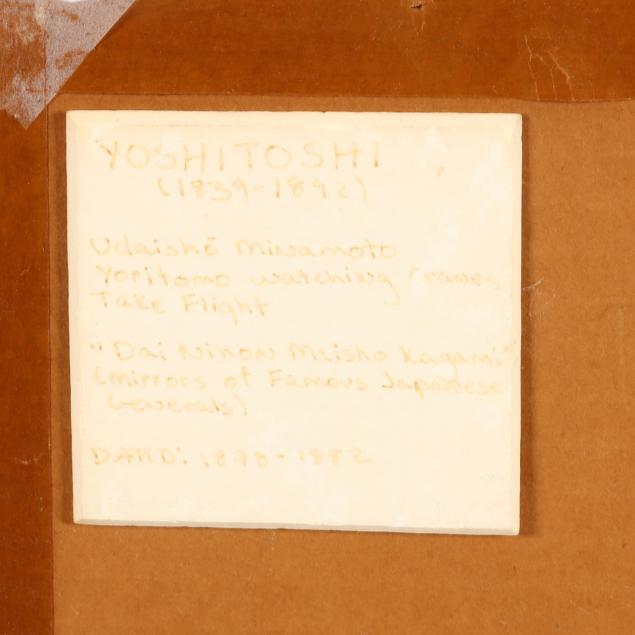 YOSHITOSHI
(1839-1892)
Udaishō Minamoto
Yoritomo watching Cranes
Take Flight
"Dai Nihon Meisho Kagami"
(Mirrors of Famous Japanese
Generals)
DATED: 1878-1882